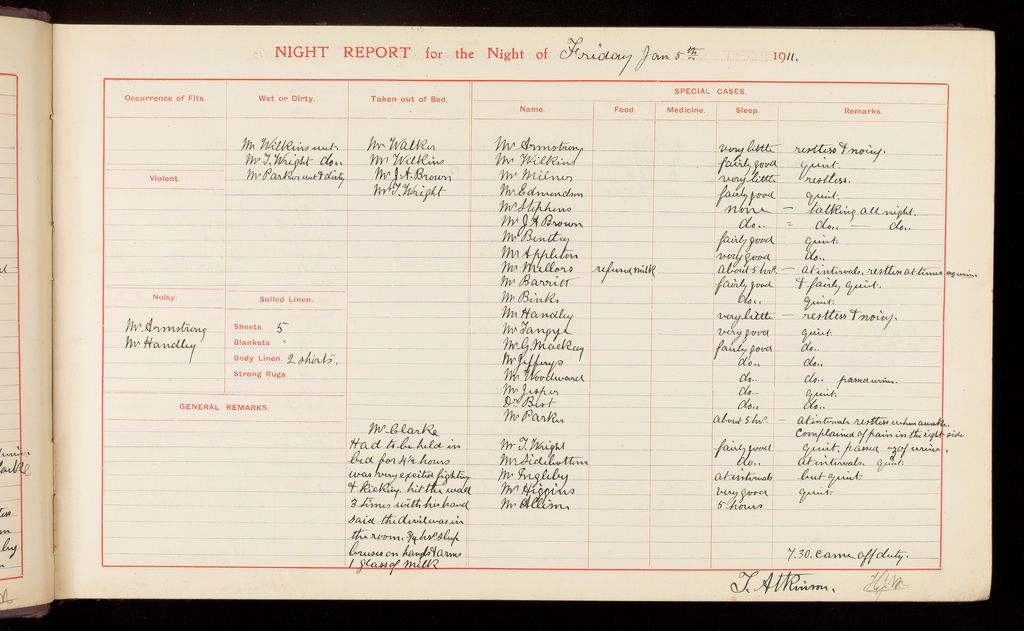 NIGHT REPORT for the Night of Friday Jan 5th 1911.
Occurrence of Fits. Wet or Dirty. Taken out of Bed. SPECIAL CASES.
Name. Food. Medicine. Sleep. Remarks.
Mr Wilkins wet
Mr T. Wright do..
Mr Parker wet & dirty
Mr Walker
Mr Wilkins
Mr J. A. Brown
Mr T. Wright
Violent.
Noisy.
Mr Armstrong
Mr Handley
Soiled Linen.
Sheets. 5
Blankets "
Body Linen. 2 shirts.
Strong Rugs.
GENERAL REMARKS.
Mr Clarke
Had to be held in
bed for 4½ hours
was very excited fighting
& kicking. hit the wall
3 times with his hand
said the devil was in
the room. ¾ hr sleep
bruises on hands & arms
1 glass of milk
Mr Armstrong very little restless & noisy.
Mr Wilkins fairly good quiet.
Mr Milner very little restless.
Mr Edmondson fairly good quiet.
Mr Stephens none — talking all night.
Mr J A Brown do.. = do.. — do..
Mr Bentley fairly good quiet.
Mr Appleton very good do..
Mr Mellors refused milk about 5 hrs. — at intervals, restless at times no urine
Mr Barritt fairly good & fairly quiet.
Mr Binks do.. quiet.
Mr Handley very little — restless & noisy.
Mr Tangye very good quiet.
Mr G. Mackay fairly good do..
Mr Jefferys do.. do..
Mr Woodward do.. do.. passed urine.
Mr Jesper do.. quiet.
Dr Best do.. do..
Mr Parker about 5 hrs. — at intervals restless when awake.
Complained of pain in the right side
Mr T. Wright fairly good quiet, passed oz of urine.
Mr Sidebottom do.. at intervals. quiet.
Mr Ingleby at intervals but quiet.
Mr Higgins very good quiet.
Mr Allison 5 hours
7.30. came off duty.
T. Atkinson.